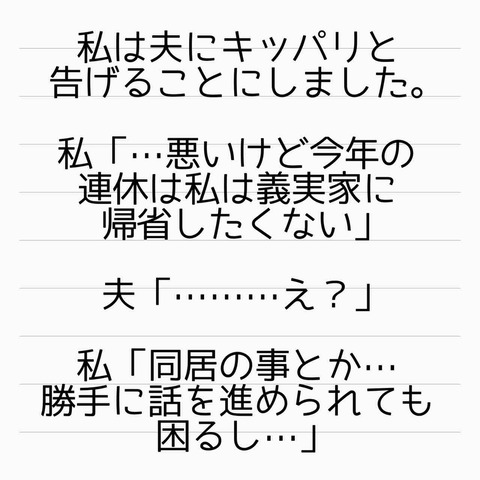 私は夫にキッパリと
告げることにしました。
私「…悪いけど今年の
連休は私は義実家に
帰省したくない」
夫「………え？」
私「同居の事とか…
勝手に話を進められても
困るし…」